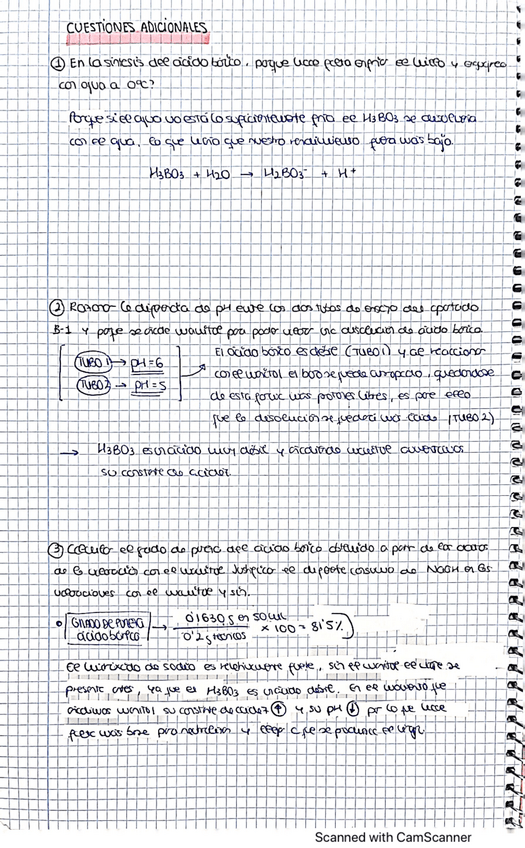 CUESTIONES ADICIONALES
① En la síntesis del ácido bórico, porque hace falta enfriar en hielo y
con agua a 0ºC?
Porque si el agua no está lo suficientemente fría el H3BO3 se disolvería
con el agua, lo que haría que nuestro rendimiento fuera más bajo.
H3BO3 + H2O → H2BO3⁻ + H⁺
② Razonar la diferencia de pH entre los dos tubos de ensayo del apartado
B-1 y porqe se añade manitol para poder valorar una disolución de ácido bórico
TUBO 1 → pH = 6
TUBO 2 → pH = 5
El ácido bórico es débil (TUBO 1) y al reaccionar
con el manitol el boro se queda, quedándose
de esta forma más protones libres, es por ello
que la disolución se más ácida (TUBO 2)
→ H3BO3 es un ácido muy débil y añadiendo manitol aumentamos
su constante de acidez.
③ Calcular el grado de pureza del ácido bórico obtenido a partir de los datos
de la valoración con el manitol. Justificar el diferente consumo de NaOH en las
valoraciones con el manitol y sin.
GRADO DE PUREZA ácido bórico → 0'1630g en 50 mL / 0'2g teóricos × 100 = 81'5%
El hidróxido de sodio es relativamente fuerte, sin el manitol el viraje se
presenta antes, ya que el H3BO3 es un ácido débil. En el momento que
añadimos manitol su constante de acidez ↑ y su pH ↓ por lo que hace
falta más base para neutralizar y llegar a que se produzca el viraje.
Scanned with CamScanner